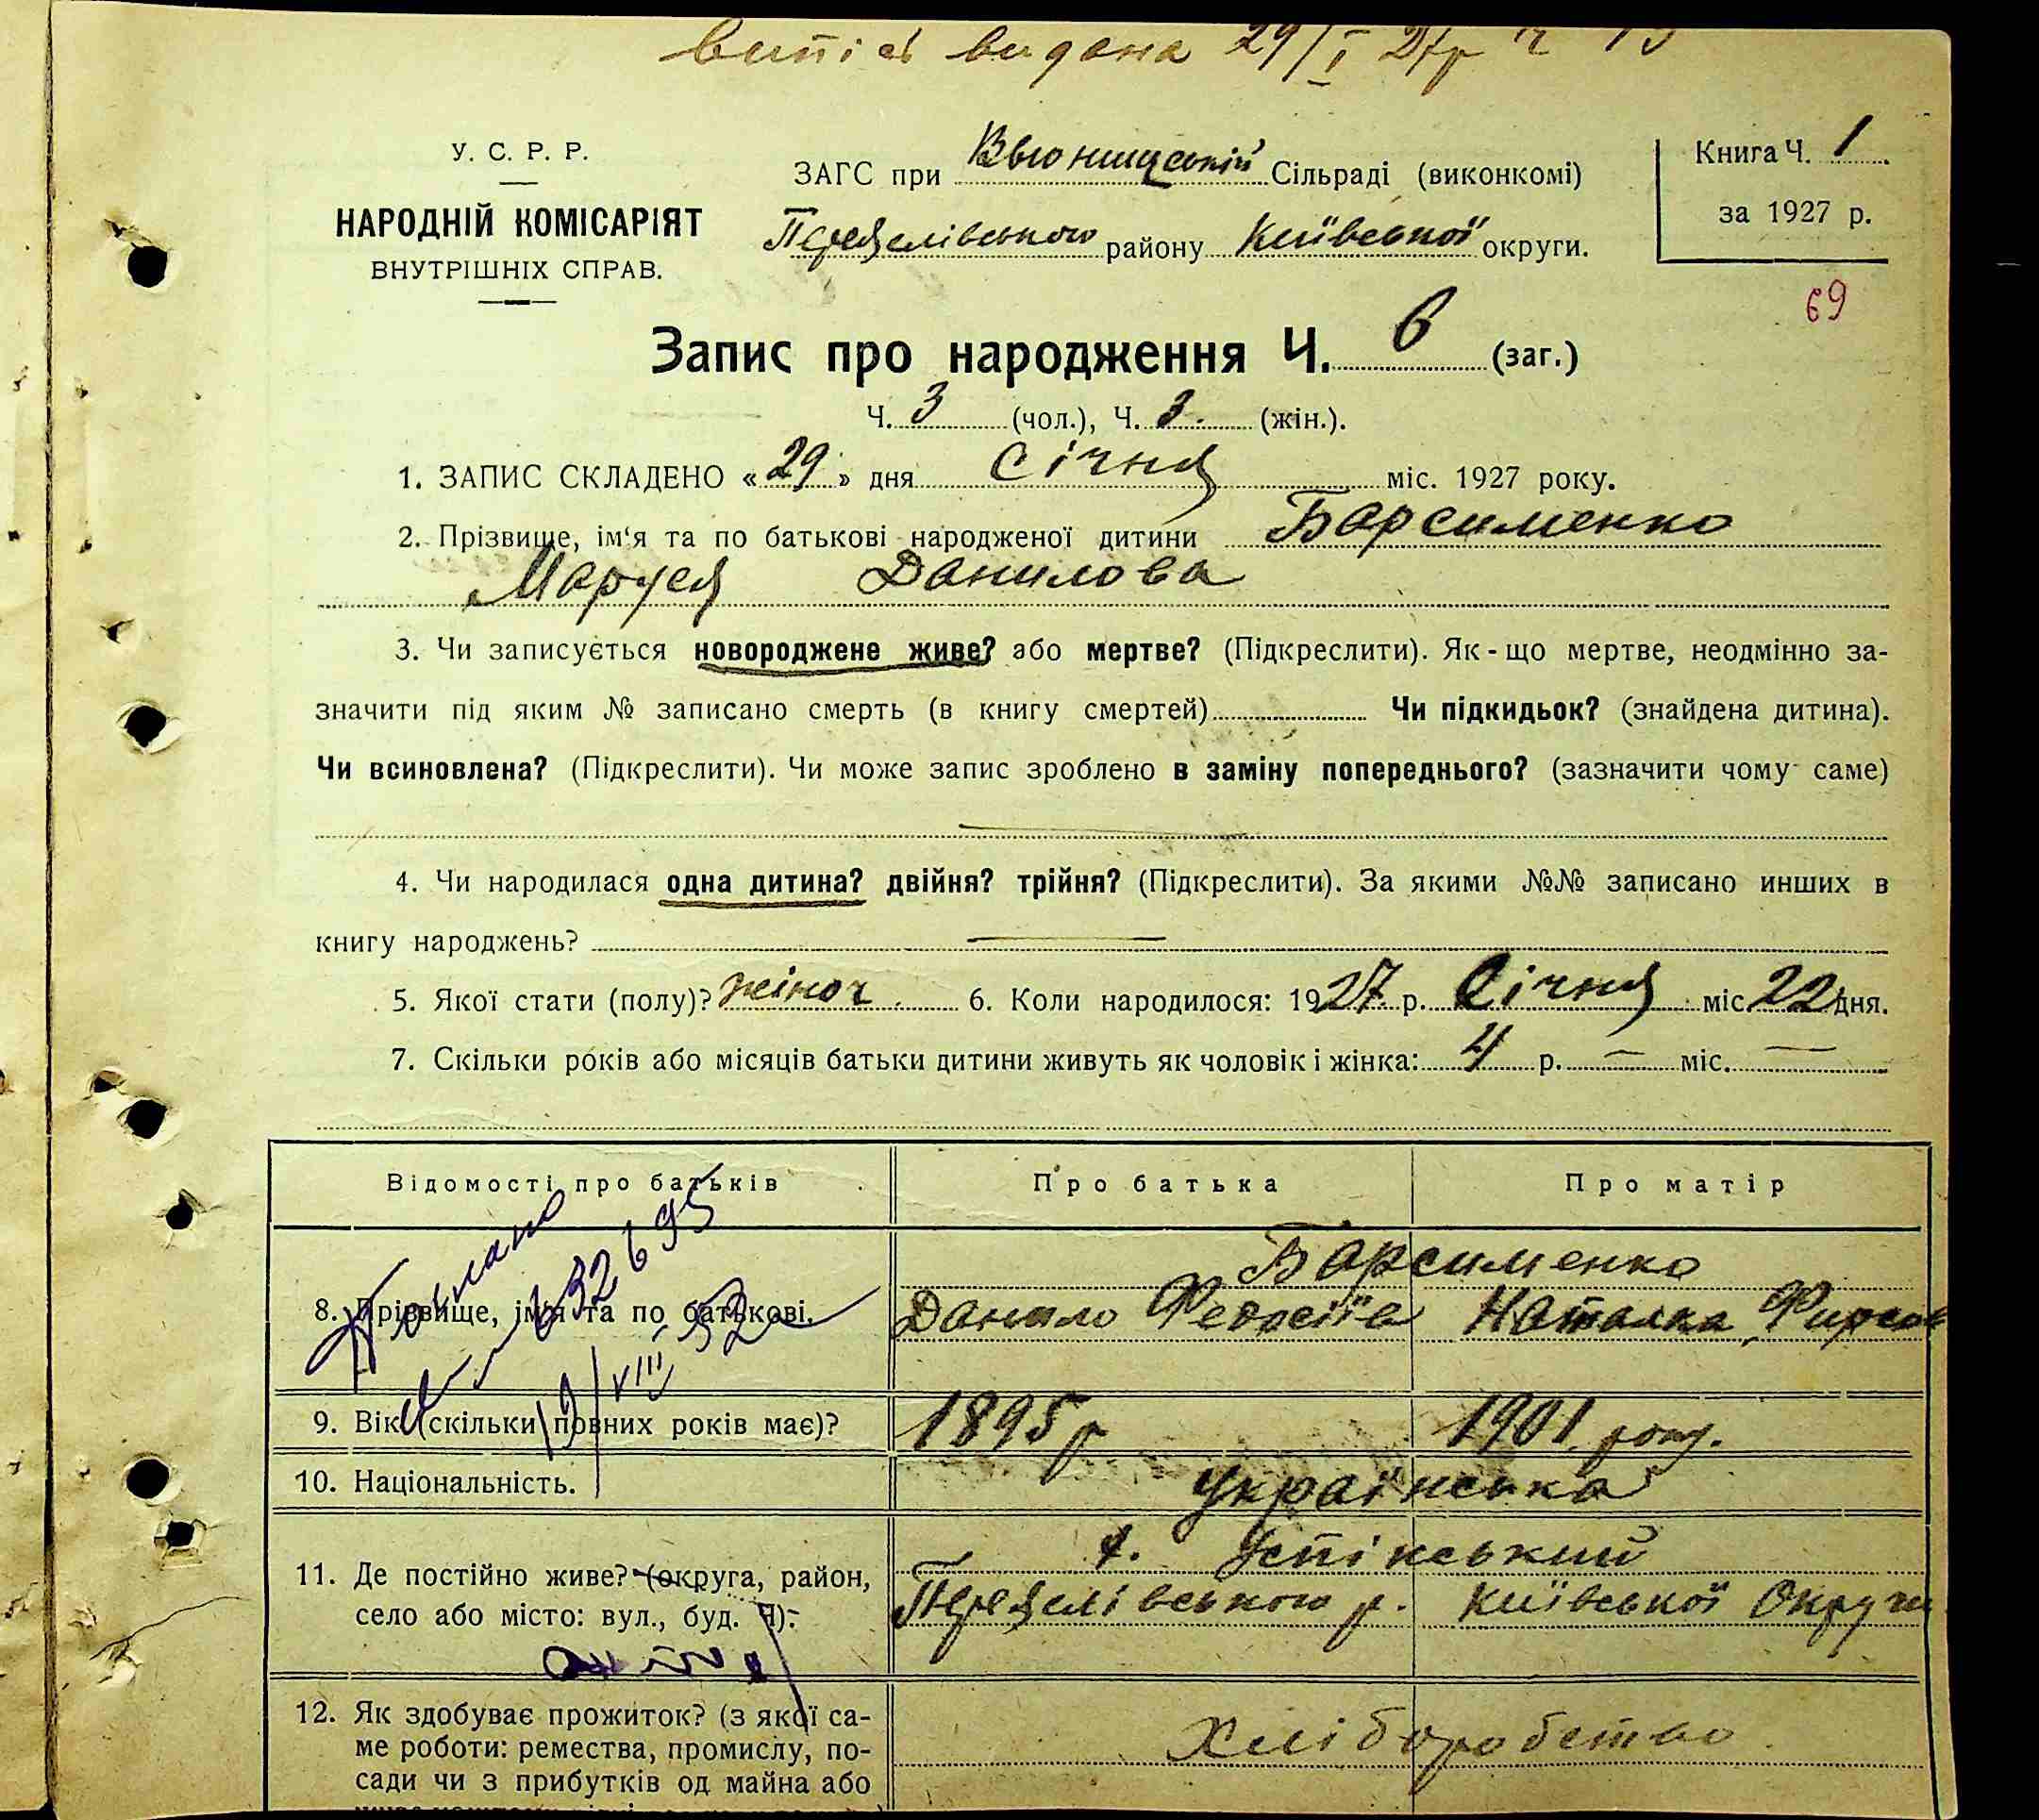 випіс видана 29/I 27р
У. С. Р. Р.
НАРОДНІЙ КОМІСАРІЯТ
ВНУТРІШНІХ СПРАВ.
ЗАГС при Вьюнищській Сільраді (виконкомі)
Переяслівського району Київської округи.
Книга Ч. 1
за 1927 р.
69
Запис про народження Ч. 6 (заг.)
Ч. 3 (чол.), Ч. 3. (жін.).
1. ЗАПИС СКЛАДЕНО «29» дня Січня міс. 1927 року.
2. Прізвище, ім‘я та по батькові народженої дитини Барсименко
Маруся Данилова
3. Чи записується новороджене живе? або мертве? (Підкреслити). Як-що мертве, неодмінно за-
значити під яким № записано смерть (в книгу смертей) Чи підкидьок? (знайдена дитина).
Чи всиновлена? (Підкреслити). Чи може запис зроблено в заміну попереднього? (зазначити чому саме)
4. Чи народилася одна дитина? двійня? трійня? (Підкреслити). За якими №№ записано инших в
книгу народжень? —
5. Якої стати (полу)? жіноч. 6. Коли народилося: 1927 р. Січня міс. 22 дня.
7. Скільки років або місяців батьки дитини живуть як чоловік і жінка: 4 р. — міс. —
Відомості про батьків Про батька Про матір
Барсименко
8. Прізвище, ім'я та по батькові. Данило Федосіїв Наталка Фирсов
9. Вік (скільки повних років має)? 1895 р 1901 року.
10. Національність. Українська
х. Успінський
11. Де постійно живе? (округа, район,
село або місто: вул., буд. Ч). Переяслівського р. Київської Округи
12. Як здобуває прожиток? (з якої са-
ме роботи: ремества, промислу, по- Хліборобство.
сади чи з прибутків од майна або